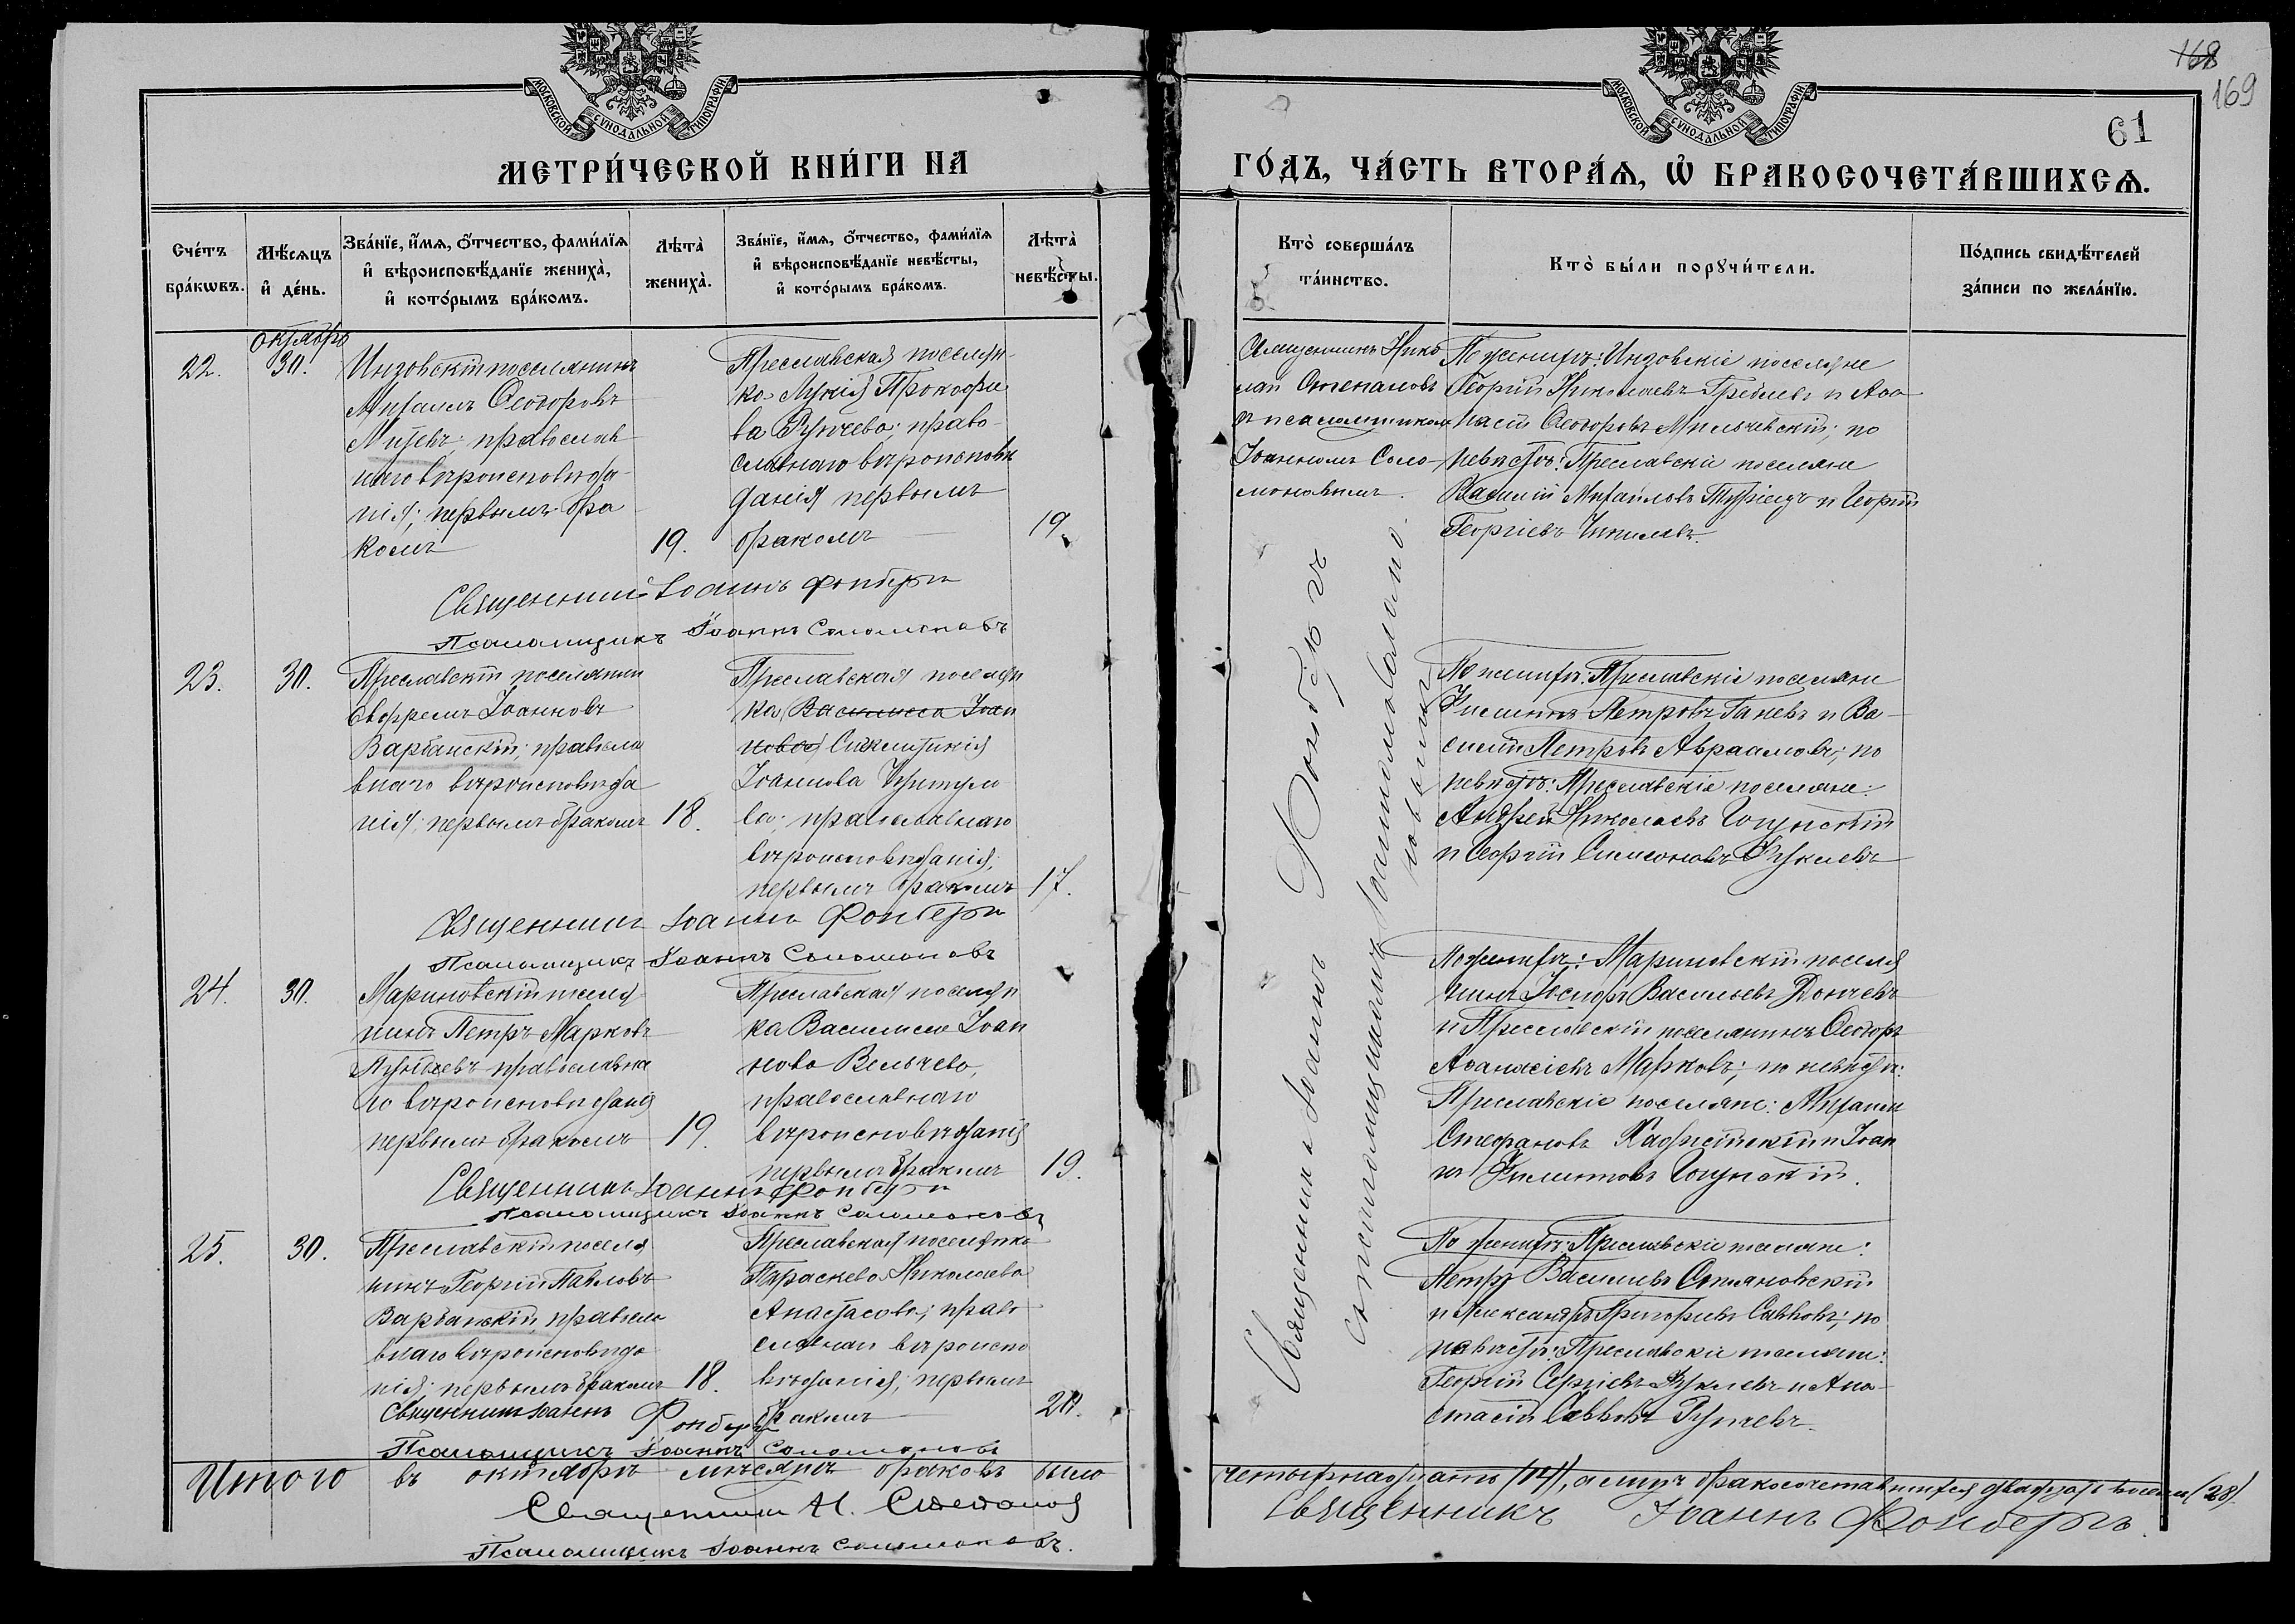 МОСКОВСКОЙ СѴНОДАЛЬНОЙ ТИПОГРАФІИ
МЕТРИ́ЧЕСКОЙ КНИ́ГИ НА
Сче́тъ бра́кѡвъ.
Мѣ́сяцъ и҆ де́нь.
Зва́нїе, и҆́мя, ѻ҆́тчество, фами́лїя и҆ вѣроисповѣ́данїе жениха̀, и҆ кото́рымъ бра́комъ.
Лѣта̀ жениха̀.
Зва́нїе, и҆́мя, ѻ҆́тчество, фами́лїя и҆ вѣроисповѣ́данїе невѣ́сты, и҆ кото́рымъ бра́комъ.
Лѣта̀ невѣ́сты.
22.
Октябрь
30.
Инзовскій поселянинъ
Михаилъ Ѳеодоровъ
Митевъ; православ
наго вѣроисповѣда
нія; первымъ бра
комъ
19.
Преславская поселян
ка Лукія Прокофіе
ва Рунчева; право
славнаго вѣроисповѣ
данія первымъ
бракомъ
19.
Священникъ Іоаннъ Фонбергъ
Псаломщикъ Іоаннъ Соломоновъ
23.
30.
Преславскій поселянин
Ефремъ Іоанновъ
Варбанскій; правосла
внаго вѣроисповѣда
нія; первымъ бракомъ
18.
Преславская поселян
ка Василиса Іоан
нова
Іоаннова
ва; православнаго
вѣроисповѣданія;
первымъ бракомъ
17.
Священникъ Іоаннъ Фонбергъ
Псаломщикъ Іоаннъ Соломоновъ
24.
30.
Мариновскій поселя
нинъ Петръ Марковъ
православна
го вѣроисповѣданія
первымъ бракомъ
19.
Преславская поселян
ка Василиса Іоан
нова Вельчева,
православнаго
вѣроисповѣданія
первымъ бракомъ
19.
Священникъ Іоаннъ Фонбергъ
Псаломщикъ Іоаннъ Соломоновъ
25.
30.
Преславскій поселя
нинъ Георгій Павловъ
Варбанскій, правосла
внаго вѣроисповѣда
нія; первымъ бракомъ
18.
Преславская поселянка
Параскева Николаева
Анастасова; право
славнаго вѣроиспо
вѣданія; первымъ
бракомъ
20.
Священникъ Іоаннъ Фонбергъ
Псаломщикъ Іоаннъ Соломоновъ
Итого въ октябрѣ мѣсяцѣ браковъ было
Священникъ Н. Степановъ
Псаломщикъ Іоаннъ Соломоновъ.
168
169
61
МОСКОВСКОЙ СѴНОДАЛЬНОЙ ТИПОГРАФІИ
ГО́ДЪ, ЧА́СТЬ ВТОРА́Ѧ, Ѡ҆ БРАКОСОЧЕТА́ВШИХСѦ.
Кто̀ соверша́лъ та́инство.
Кто̀ бы́ли порꙋчи́тели.
По́дпись свидѣ́телей за́писи по жела́нїю.
Священникъ Нико
лай Степановъ
съ псаломщикомъ
Іоанномъ Соло-
моновымъ.
По женихѣ: Инзовскіе поселяне
Георгій Николаевъ Гребневъ и Аѳа
насій Ѳеодоровъ Мильчевскій; по
невѣстѣ: Преславскіе поселяне
Василій Михайловъ и Георгій
Георгіевъ
Священникъ Іоаннъ Фонбергъ
съ псаломщикомъ Іоанномъ Соломо
новымъ
По женихѣ: Преславскіе поселяне
Филиппъ Петровъ Ганевъ и Ва-
силій Петровъ Авраамовъ; по
невѣстѣ: Преславскіе поселяне:
Андрей Николаевъ
и Георгій Симеоновъ Рукчевъ
По женихѣ: Мариновскій поселя
нинъ Іосифъ Васильевъ Дончевъ
и Преславскій поселянинъ Ѳеодоръ
Аѳанасіевъ Марковъ; по невѣстѣ:
Преславскіе поселяне: Михаилъ
Стефановъ Хаджійскій и Іоан
нъ Филипповъ
По женихѣ: Преславскіе поселяне:
Петръ Василіевъ Стояновскій
и Александръ Григорьевъ Савковъ; по
невѣстѣ: Преславскіе поселяне:
Георгій Сергіевъ и Ана-
стасій Савковъ Рунчевъ.
четырнадцать (14), а лицъ бракосочетавшихся двадцать восемь (28).
Священникъ Іоаннъ Фонбергъ.